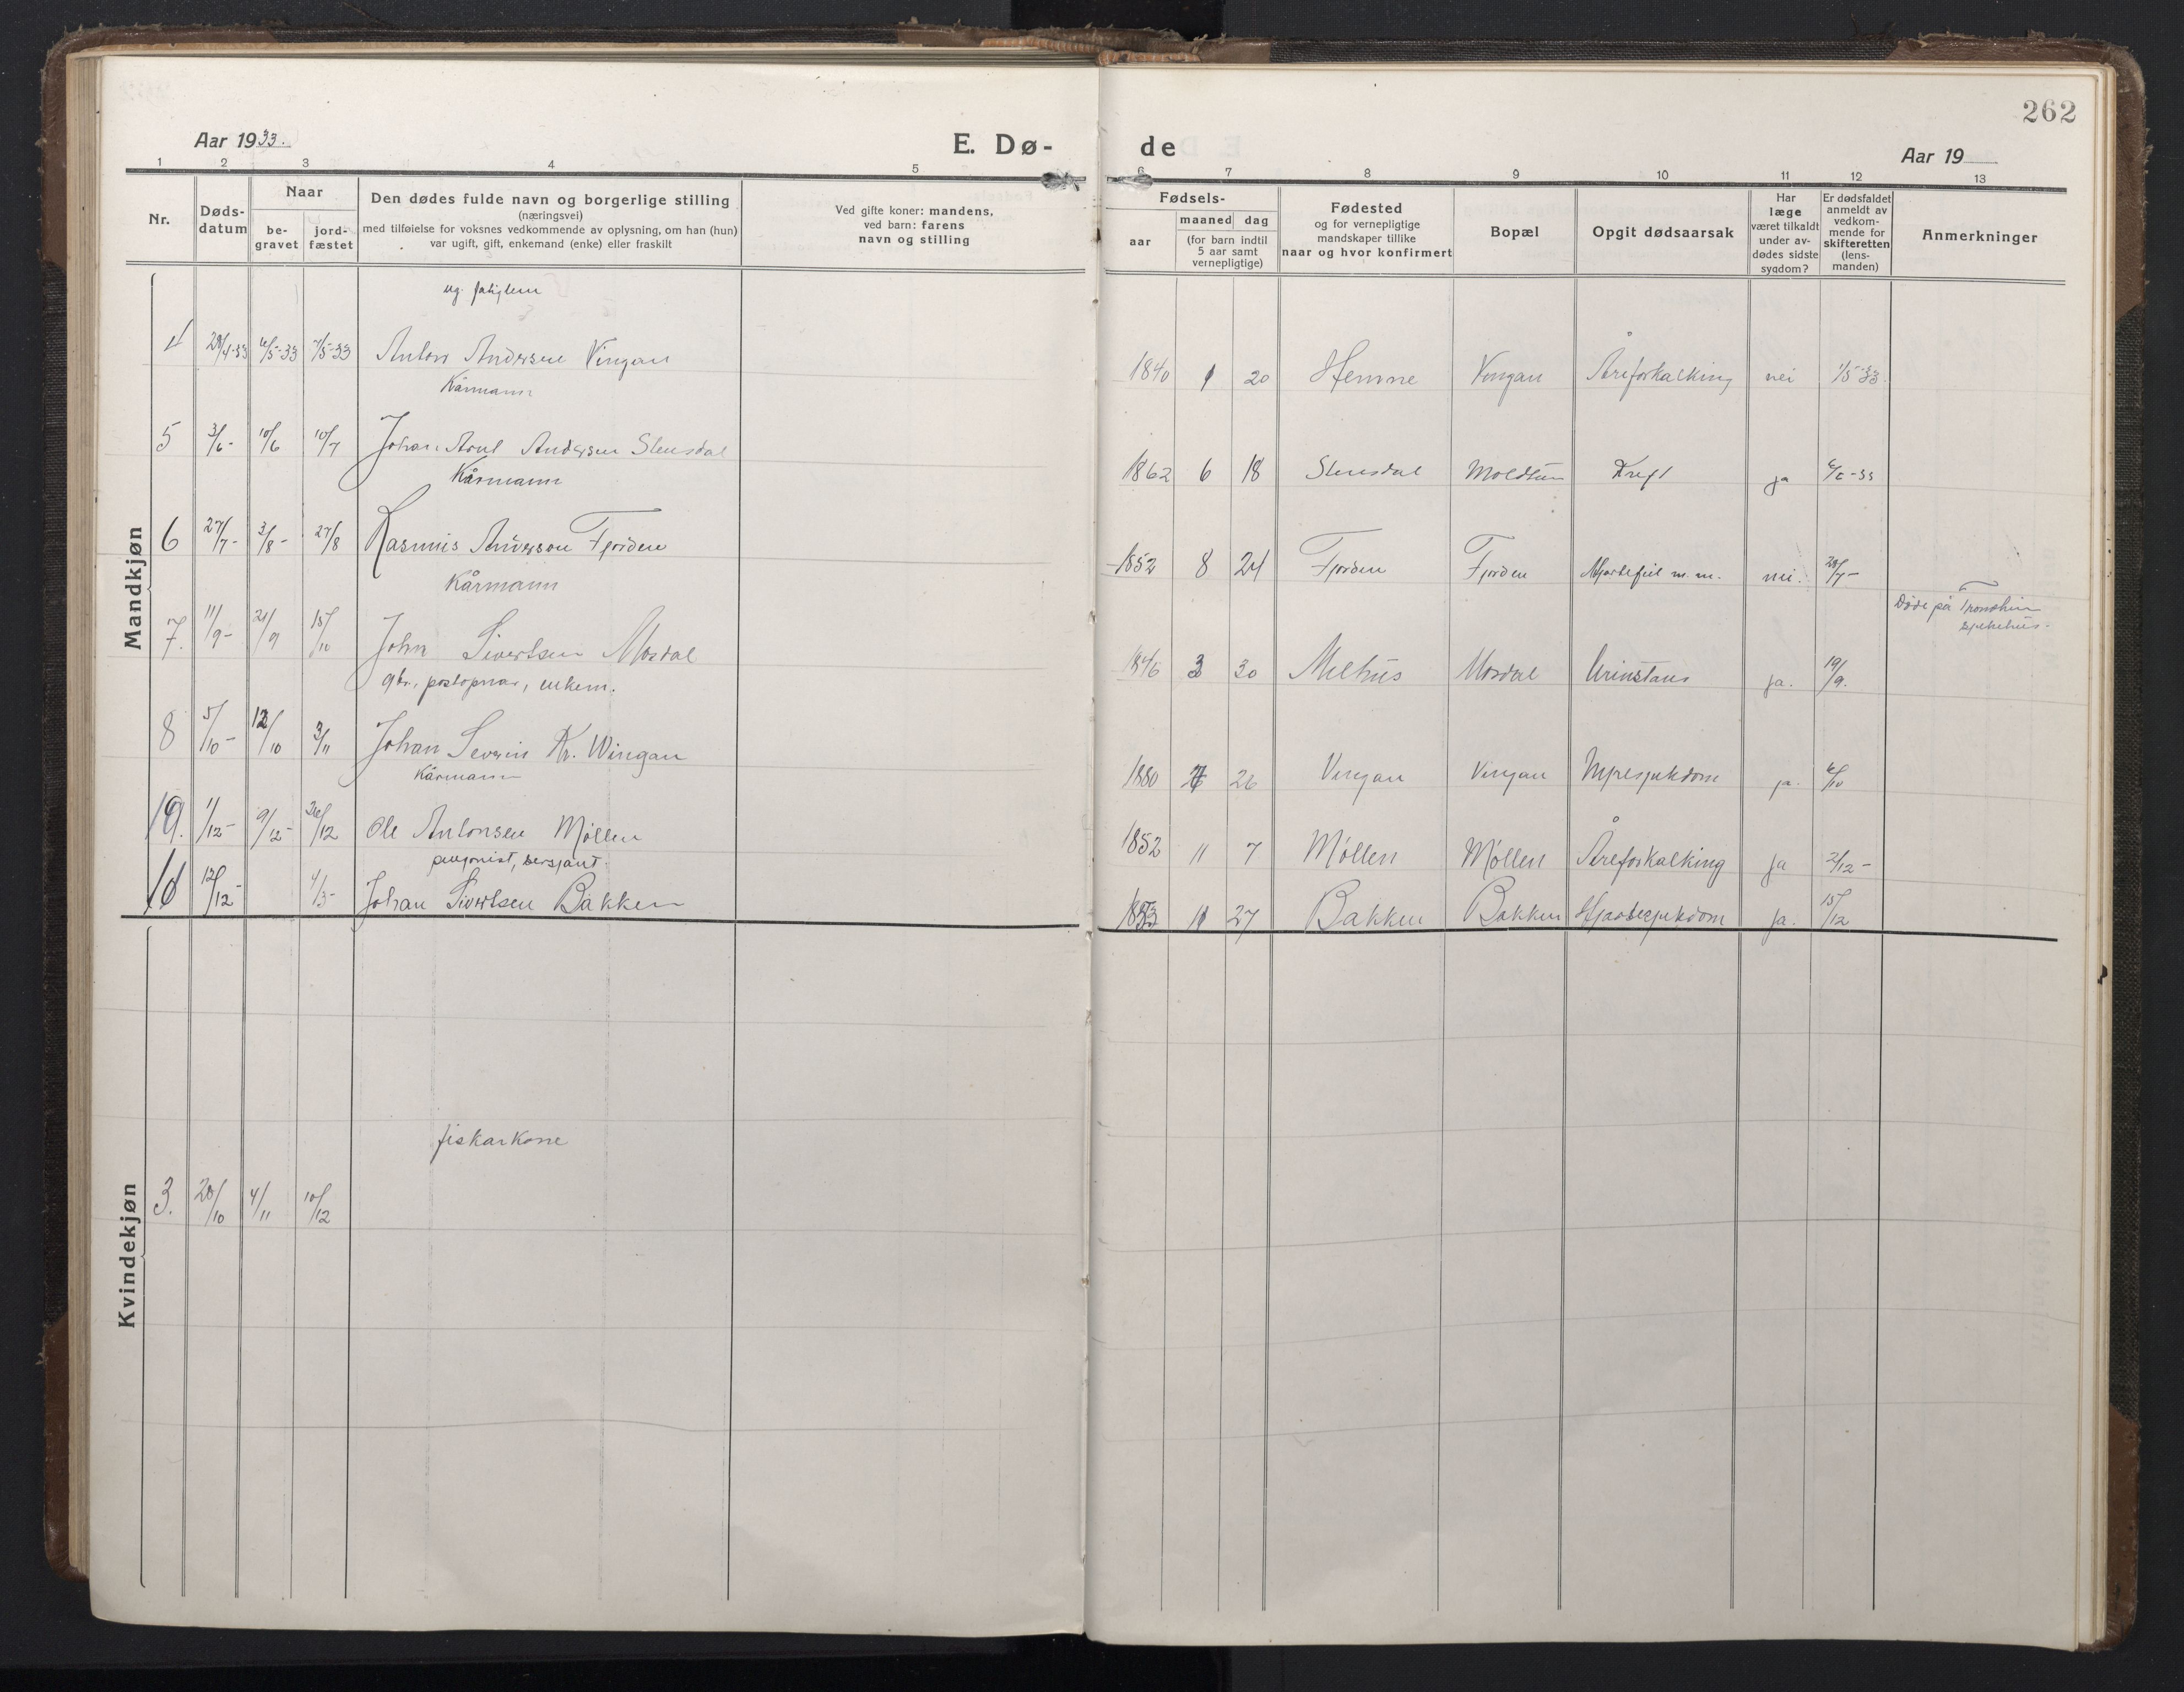 262
Aar 1933.
E. Dø- de
Aar 19
1 2 3 4 5 6 7 8 9 10 11 12 13
Nr.
Døds-
datum
Naar
be-
gravet
jord-
fæstet
Den dødes fulde navn og borgerlige stilling
(næringsvei)
med tilføielse for voksnes vedkommende av oplysning, om han (hun)
var ugift, gift, enkemand (enke) eller fraskilt
Ved gifte koner: mandens,
ved barn: farens
navn og stilling
Fødsels-
aar
maaned dag
(for barn indtil
5 aar samt
vernepligtige)
Fødested
og for vernepligtige
mandskaper tillike
naar og hvor konfirmert
Bopæl
Opgit dødsaarsak
Har
læge
været tilkaldt
under av-
dødes sidste
sygdom?
Er dødsfaldet
anmeldt av
vedkom-
mende for
skifteretten
(lens-
manden)
Anmerkninger
Mandkjøn
ug.
4 28/4-33 6/5-33 7/5-33 Anton Andersen Vingan 1840 1 20 Hemne Vingan Åreforkalking nei 1/5-33.
Kårmann
5 3/6- 10/6 10/7 Johan Arnt Andersen Stensdal 1862 6 18 Stensdal Moldtun Kreft ja 6/6-33
Kårmann
6 27/7- 3/8- 27/8 Rasmus Anderson Fjorden 1852 8 24 Fjorden Fjorden Hjartefeil m.m. nei. 28/7-
Kårmann
Døde på Tronshim
sjukehus.
7. 11/9- 21/9 15/10 John Sivertsen Mosdal 1846 3 30 Melhus Mosdal Urinstans ja. 19/9.
gbr., postopnar, enkem.
8 5/10- 12/10 3/11 Johan Severin Kr. Wingan 1880 7 26 Vingan Vingan Nyresjukdom ja. 6/10
Kårmann
9. 1/12- 9/12- 26/12 Ole Antonsen Møllen 1852 11 7 Møllen Møllen Åreforkalking ja 2/12-
pensjonist, sersjant.
10 12/12- 4/3- Johan Sivertsen Bakken 1853 11 27 Bakken Bakken Hjartesjukdom ja. 15/12
Kvindekjøn
fiskarkone
3. 28/10 4/11 10/12